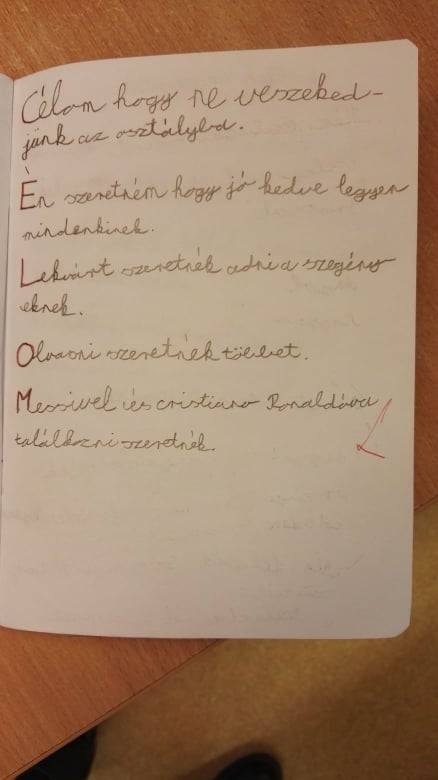 Célom hogy ne veszeked-
jünk az osztályba.
Én szeretném hogy jó kedve legyen
mindenkinek.
Lekvárt szeretnék adni a szegény
eknek.
Olvasni szeretnék többet.
Messivel és cristiano Ronaldóval
találkozni szeretnék.